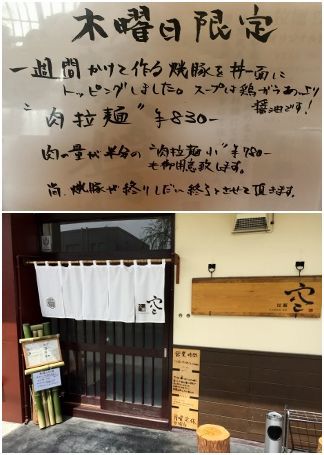 木曜日限定
一週間かけて作る焼豚を丼一面に
トッピングしました。スープは鶏がらあっさり
醤油です!
"肉拉麺" ¥830-
肉の量が半分の"肉拉麺小"¥780-
も御用意致します。
尚、焼豚が終りしだい終了とさせて頂きます。
空
拉麺
空
営業時間